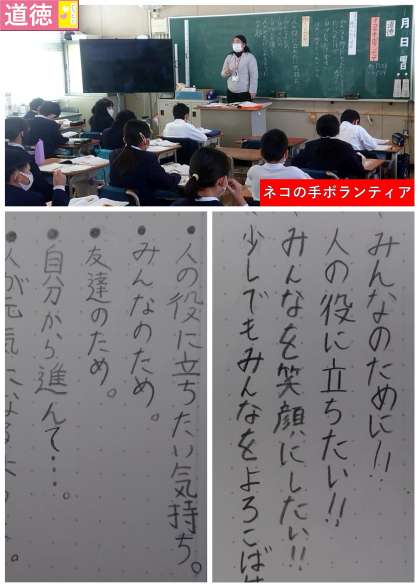 道徳
月
日
ネコの手ボランティア
・人の役に立ちたい気持ち。
・みんなのため。
・友達のため。
・自分から進んで…。
みんなのために!!
人の役に立ちたい!!
みんなを笑顔にしたい!!
少しでもみんなをよろこば